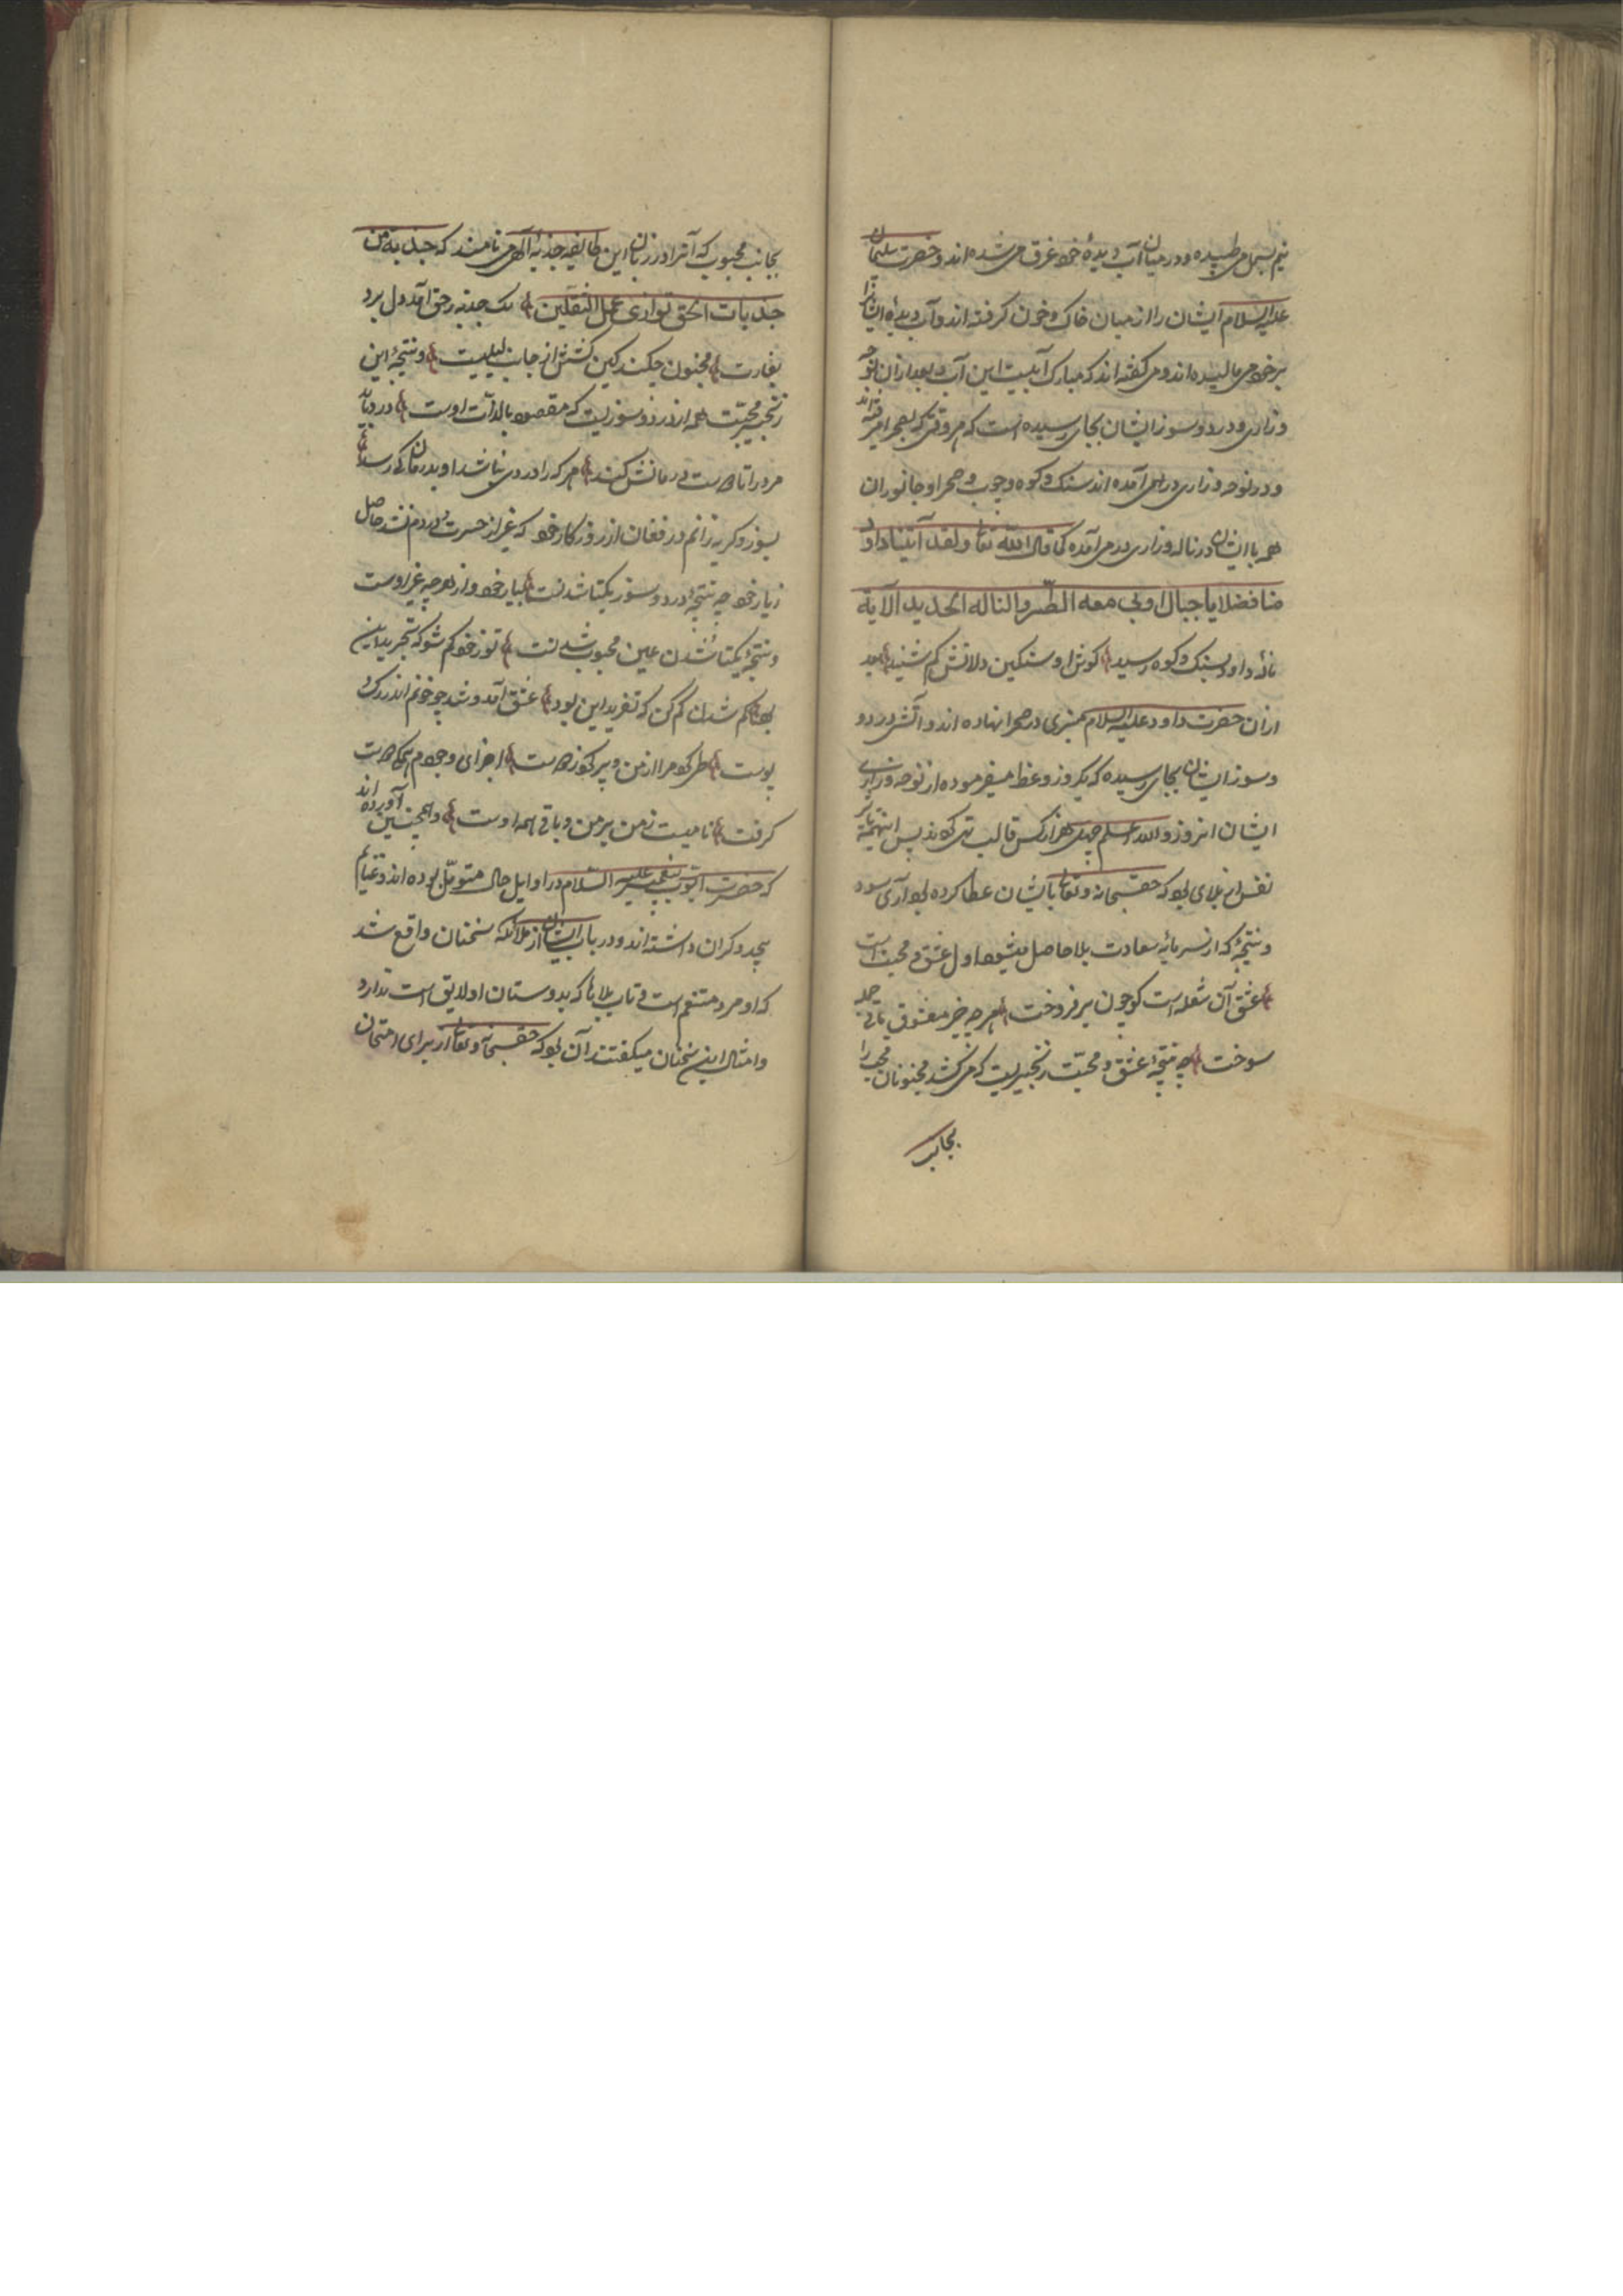 نیم بسمل می طپیده و در میان آب دیدهٔ خود غرق می شده اند و حضرت سلیمان
علیه السلام ایشان را از میان خاک و خون کرفته اند و آب دیدهٔ ایشانرا
بر خود می مالیده اند و می کفته اند که مبارک آبیست این آب و بعد ازان نوحه
و زاری و درد و سوز ایشان بجای رسیده است که هر وقتی که بصحرا میرفته اند
و در نوحه و زاری در می آمده اند سنک و کوه و چوب و صحرا و جانوران
همه با ایشان در ناله و زاری در می آمده کما قال الله تعا ولقد آتینا داود
منا فضلا یا جبال اوبی معه الطیر والنا له الحدید الایة
نالهٔ داود بسنک و کوه رسید کوش او سنکین دلانش کم شنید بعد
ازان حضرت داود علیه السلام منبری در صحرا نهاده اند و آتش درد و
و سوز ایشان بجای رسیده که یکروز وعظ میفرموده از نوحه و زاری
ایشان انروز والله اعلم چهل هزار کس قالب تهی کردند پس اینهمه تأثیر
نفس از بلای بود که حقسبحانه و تعا بایشان عطا کرده بود آری سود
و نتیجهٔ که از سرمایهٔ سعادت بلا حاصل میشود اول عشق و محبت است
عشق آن شعله است کو چون بر فروخت هر چه جز معشوق باقی جمله
سوخت چه نتیجهٔ عشق و محبت زنجیریست که می کشد مجنونان محب را
بجانب
بجانب محبوب که آنرا در زبان این طایفه جذبهٔ الهی می نامند که جذبة من
جذبات الحق توازی عمل الثقلین یک جذبه ز حق آمد و دل برد
بغارت مجنون چکند کین کشش از جانب لیلیست و نتیجهٔ این
زنجیر محبت همه از درد و سوزیست که مقصود بالذات اوست درد باید
مرد را تا دوست درمانش کند هر که را دردی نباشد او بدرمان کی رسد
بسوز و کریه زانم در فغان از روزکار خود که غیر از حسرت و دردم نشد حاصل
ز یار خود چه نتیجهٔ درد و سوز یکتا شدنست بیار خود و از هر چه غیر اوست
و نتیجهٔ یکتا شدن عین محبوب شدنست تو ز خود کم شو که تجرید این
بود کم شدن کم کن که تفرید این بود عشق آمد و شد چو خونم اندر رک و
پوست خالی کرد مرا از من و پر کرد ز دوست اجزای وجودم همکی دوست
کرفت نامیست ز من بر من و باقی همه اوست و همچنین آورده اند
که حضرت ایوب پیغمبر علیه السلام در اوایل حال متموّل بوده اند و غنایم
بیحد و کران داشته اند و در باب ایشان از ملائکه سخنان واقع شد
که او مرد متنعم است و تاب بلاها که بدوستان او لایق است ندارد
و امثال این سخنان میکفتند آن بود که حقسبحانه و تعا از برای امتحان